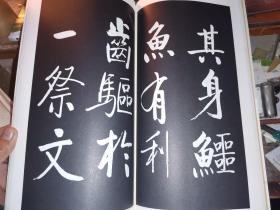 其身鱷
魚有利
齒驅於
一祭文